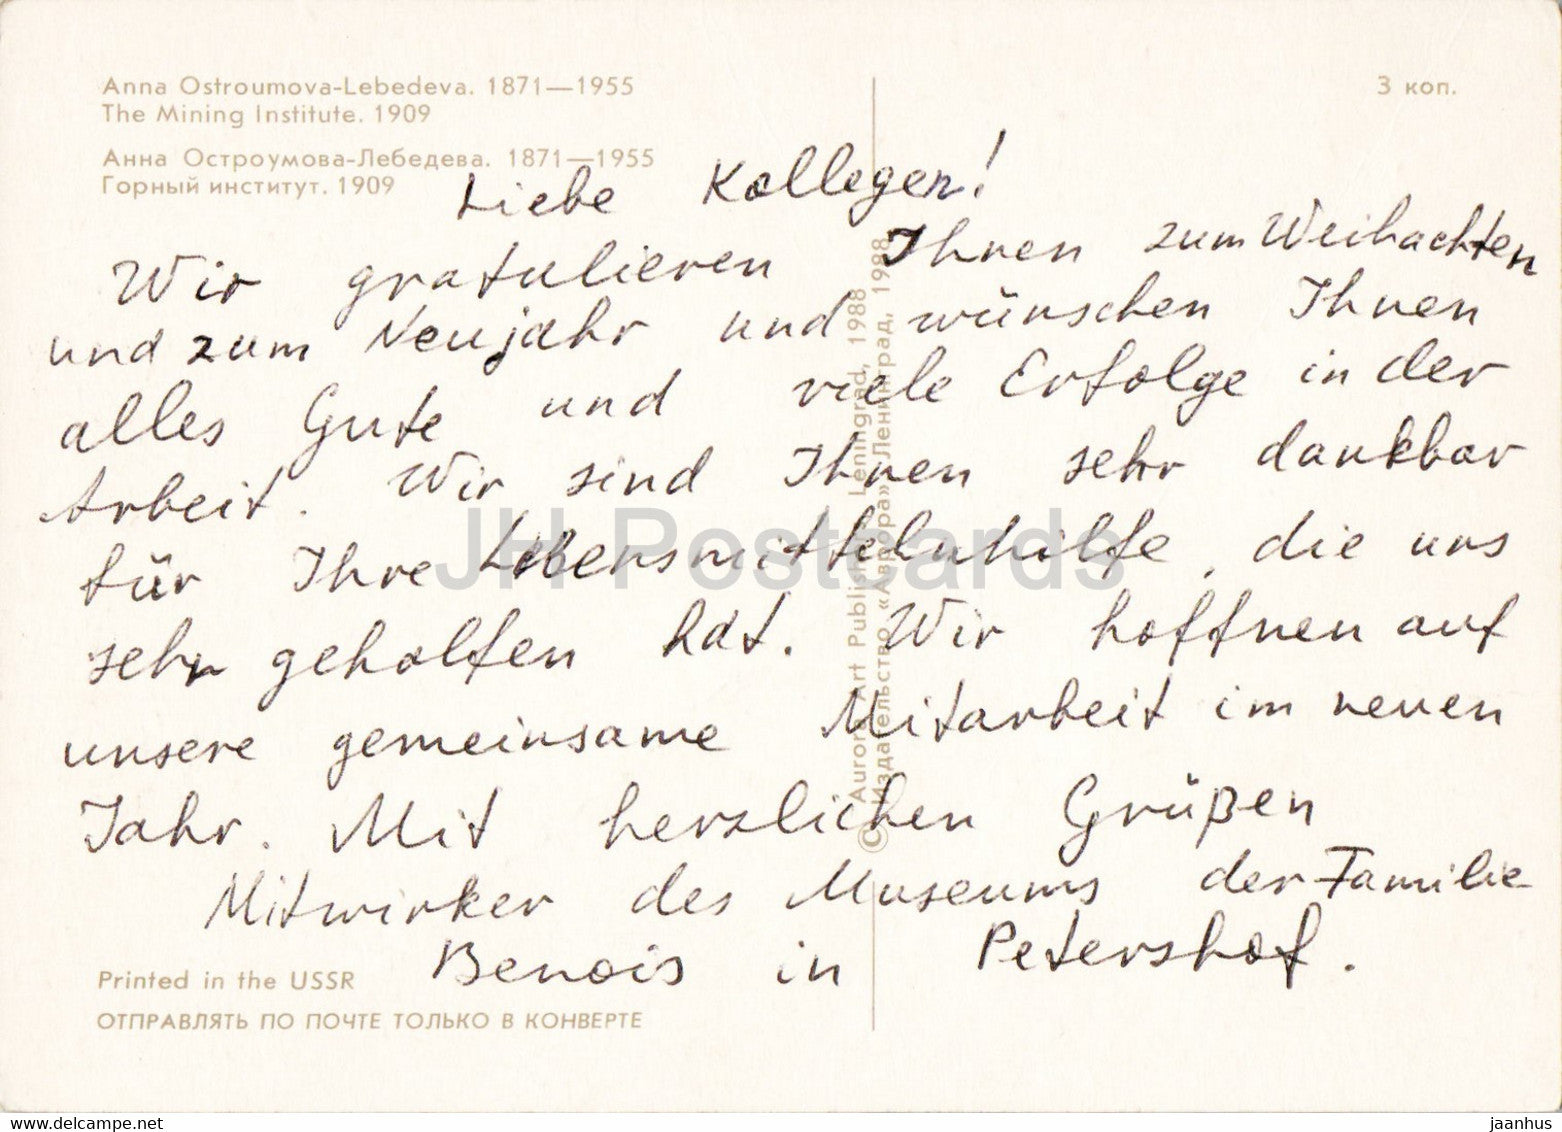 Anna Ostroumova-Lebedeva. 1871—1955
The Mining Institute. 1909
Анна Остроумова-Лебедева. 1871—1955
Горный институт. 1909
3 коп.
Liebe Kollegen!
Wir gratulieren Ihnen zum Weihachten
und zum Neujahr und wünschen Ihnen
alles Gute und viele Erfolge in der
Arbeit. Wir sind Ihnen sehr dankbar
für Ihre Lebensmittelnhilfe, die uns
sehr geholfen hat. Wir hoffnen auf
unsere gemeinsame Mitarbeit im neuen
Jahr. Mit herzlichen Grüßen
Mitwirker des Museums der Familie
Benois in Petershof.
© Aurora Art Publishers, Leningrad, 1988
Издательство «Аврора», Ленинград, 1988
Printed in the USSR
ОТПРАВЛЯТЬ ПО ПОЧТЕ ТОЛЬКО В КОНВЕРТЕ
JH Postcards
www.delcampe.net
jaanhus